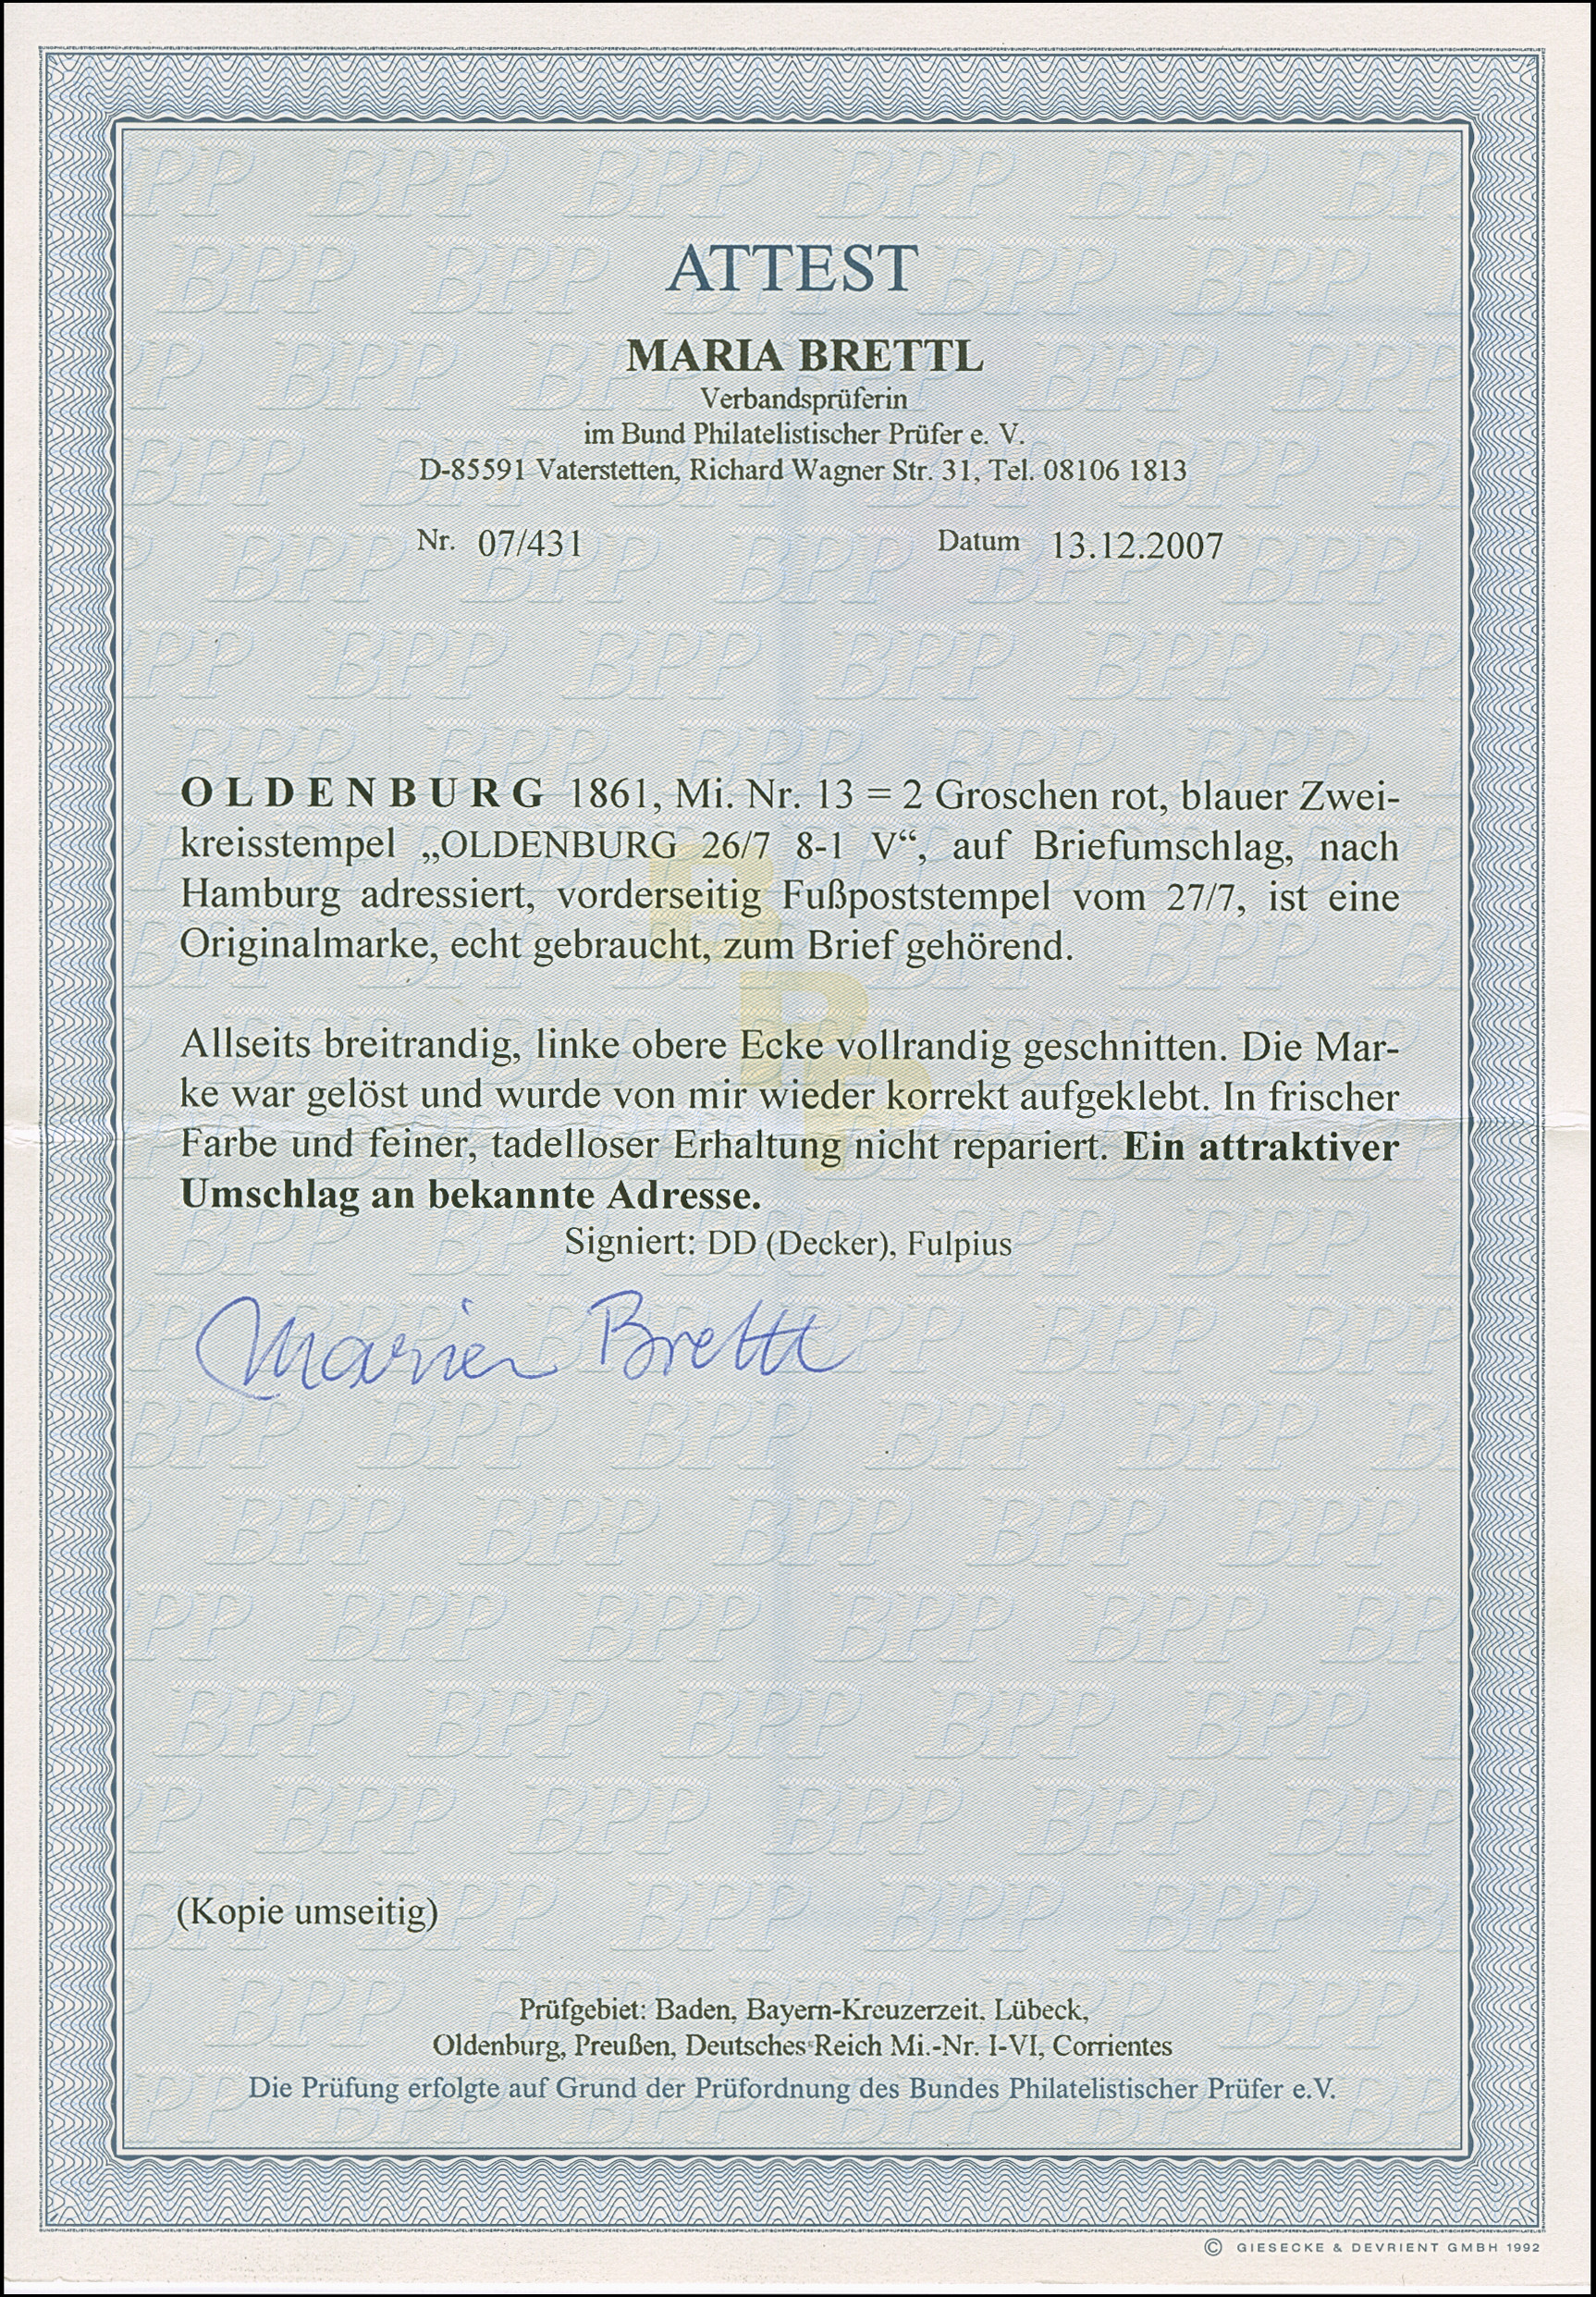 ATTEST
MARIA BRETTL
Verbandsprüferin
im Bund Philatelistischer Prüfer e. V.
D-85591 Vaterstetten, Richard Wagner Str. 31, Tel. 08106 1813
Nr. 07/431 Datum 13.12.2007
OLDENBURG 1861, Mi. Nr. 13 = 2 Groschen rot, blauer Zwei-
kreisstempel „OLDENBURG 26/7 8-1 V“, auf Briefumschlag, nach
Hamburg adressiert, vorderseitig Fußpoststempel vom 27/7, ist eine
Originalmarke, echt gebraucht, zum Brief gehörend.
Allseits breitrandig, linke obere Ecke vollrandig geschnitten. Die Mar-
ke war gelöst und wurde von mir wieder korrekt aufgeklebt. In frischer
Farbe und feiner, tadelloser Erhaltung nicht repariert. Ein attraktiver
Umschlag an bekannte Adresse.
Signiert: DD (Decker), Fulpius
Maria Brettl
(Kopie umseitig)
Prüfgebiet: Baden, Bayern-Kreuzerzeit, Lübeck,
Oldenburg, Preußen, Deutsches Reich Mi.-Nr. I-VI, Corrientes
Die Prüfung erfolgte auf Grund der Prüfordnung des Bundes Philatelistischer Prüfer e.V.
© GIESECKE & DEVRIENT GMBH 1992